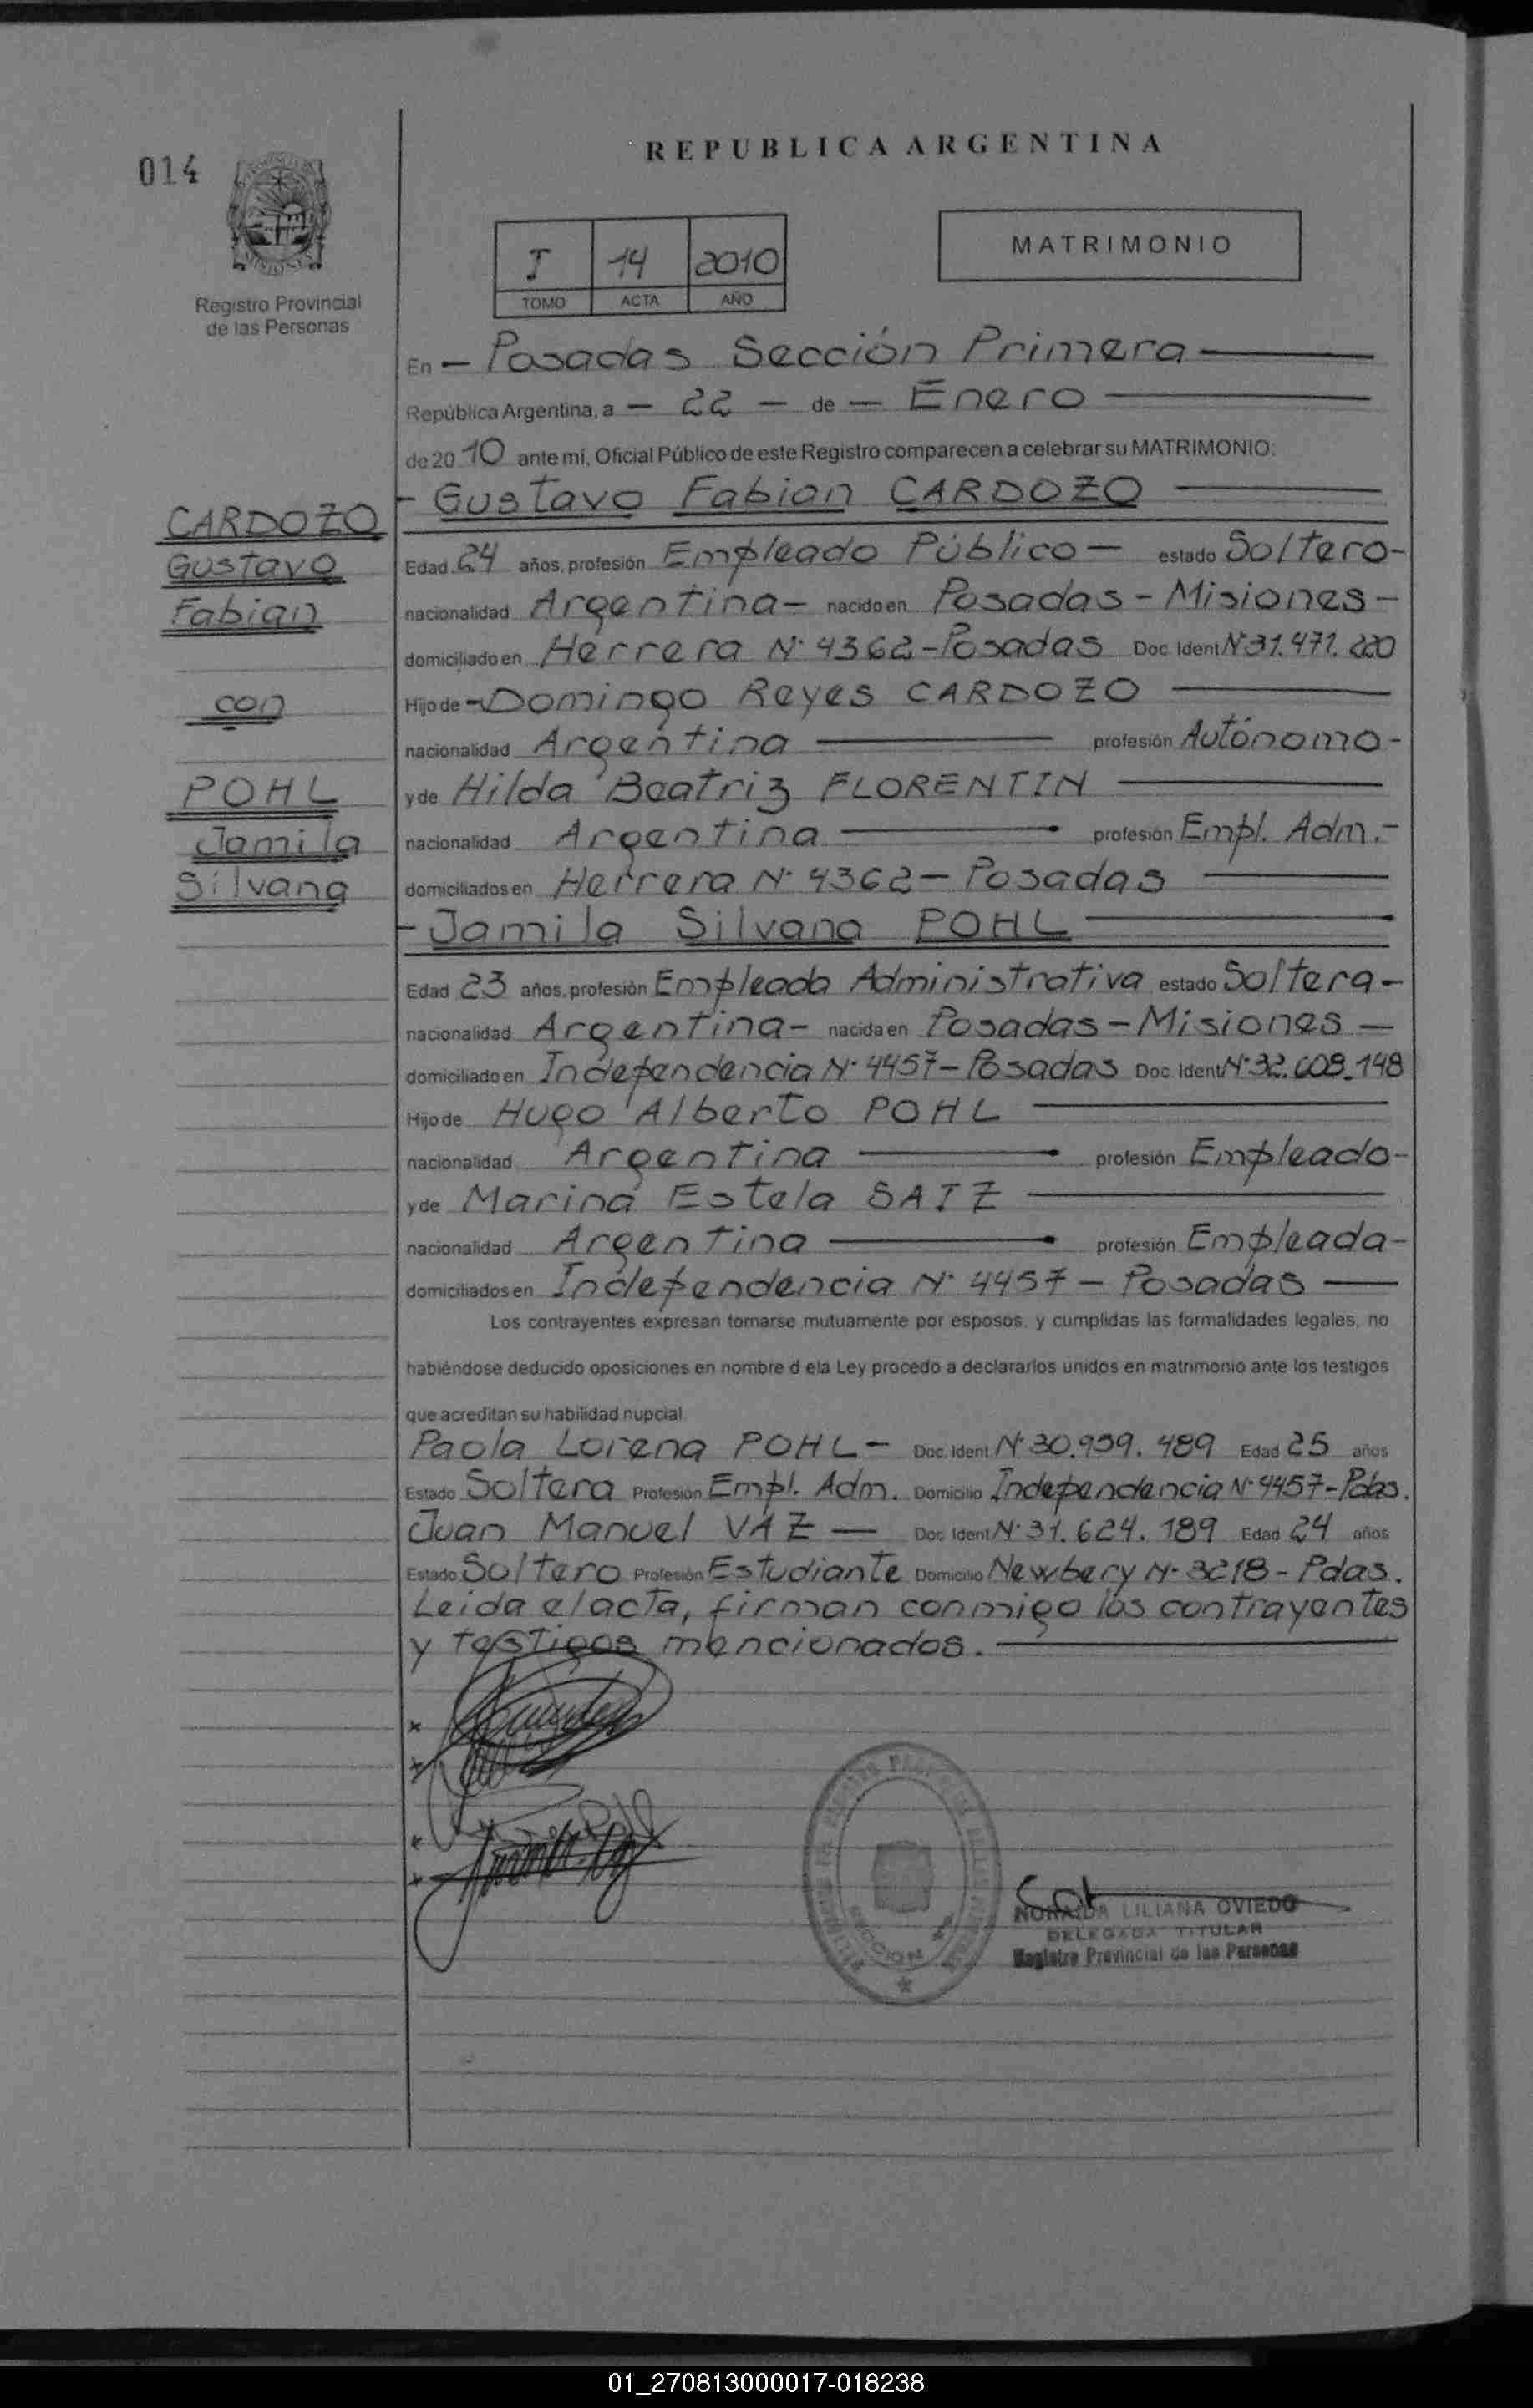 REPUBLICA ARGENTINA
014
MATRIMONIO
I 14 2010
TOMO ACTA AÑO
Registro Provincial
de las Personas
En - Posadas Sección Primera
República Argentina, a - 22 - de - Enero
de 20 10 ante mí, Oficial Público de este Registro comparecen a celebrar su MATRIMONIO:
- Gustavo Fabian CARDOZO
CARDOZO
Gustavo
Fabian
con
POHL
Jamila
Silvana
Edad 24 años, profesión Empleado Público - estado Soltero-
nacionalidad Argentina- nacido en Posadas - Misiones -
domiciliado en Herrera Nº 4362-Posadas Doc. Ident Nº 31.471.220
Hijo de - Domingo Reyes CARDOZO
nacionalidad Argentina profesión Autónomo -
y de Hilda Beatriz FLORENTIN
nacionalidad Argentina profesión Empl. Adm.-
domiciliados en Herrera Nº 4362 - Posadas
- Jamila Silvana POHL
Edad 23 años, profesión Empleada Administrativa estado Soltera-
nacionalidad Argentina- nacida en Posadas - Misiones -
domiciliado en Independencia Nº 4457-Posadas Doc. Ident Nº 32.608.148
Hijo de Hugo Alberto POHL
nacionalidad Argentina profesión Empleado-
y de Marina Estela SAIZ
nacionalidad Argentina profesión Empleada-
domiciliados en Independencia Nº 4457 - Posadas
Los contrayentes expresan tomarse mutuamente por esposos, y cumplidas las formalidades legales, no
habiéndose deducido oposiciones en nombre d ela Ley procedo a declararlos unidos en matrimonio ante los testigos
que acreditan su habilidad nupcial.
Paola Lorena POHL- Doc. Ident Nº 30.959.489 Edad 25 años
Estado Soltera Profesión Empl. Adm. Domicilio Independencia Nº 4457-Pdas.
Juan Manuel VAZ - Doc. Ident Nº 31.624.189 Edad 24 años
Estado Soltero Profesión Estudiante Domicilio Newbery Nº 3218 - Pdas.
Leida el acta, firman conmigo los contrayentes
y testigos mencionados.
NORAIDA LILIANA OVIEDO
DELEGADA TITULAR
Registro Provincial de las Personas
01_270813000017-018238